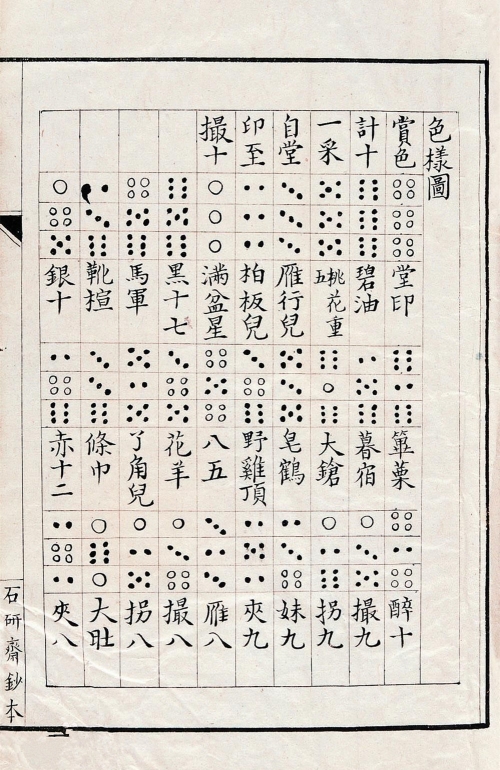 色樣圖
賞色
計十
一采
自堂
印至
撮十
堂印
碧油
桃花重五
雁行兒
拍板兒
滿盆星
黑十七
馬軍
靴楦
銀十
篳篥
暮宿
大鎗
皂鶴
野雞頂
八五
花羊
了角兒
條巾
赤十二
醉十
撮九
拐九
妹九
夾九
雁八
撮八
拐八
大肚
夾八
石研齋鈔本